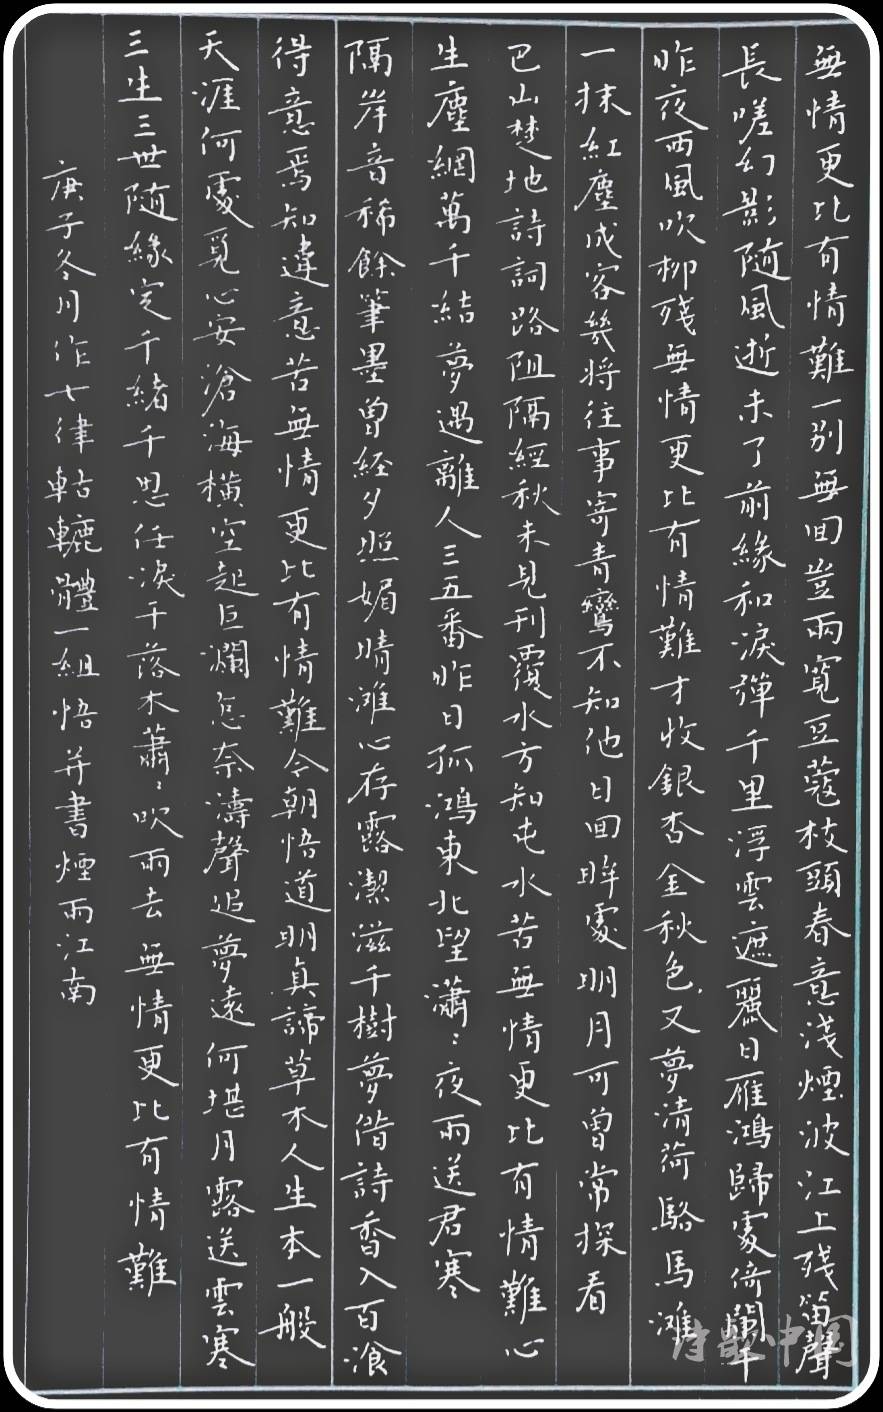 無情更比有情難一別無回豈兩寬豆蔻枝頭春意淺煙波江上殘笛聲
長嗟幻影隨風逝未了前緣和淚彈千里浮雲遮麗日雁鴻歸處倚闌干
昨夜西風吹柳殘無情更比有情難才收銀杏金秋色又夢清荷駱馬灘
一抹紅塵成客幾將往事寄青鸞不知他日回眸處明月可曾常探看
巴山楚地詩詞路阻隔經秋未見刊覆水方知屯水苦無情更比有情難心
生塵網萬千結夢遇離人三五番昨日孤鴻東北望瀟瀟夜雨送君寒
隔岸音稀餘筆墨曾經夕照媚晴灘心存露潔滋千樹夢借詩香入百飡
得意焉知違意苦無情更比有情難今朝悟道明真諦草木人生本一般
天涯何處覓心安滄海橫空起巨瀾怎奈濤聲追夢遠何堪月露送雲寒
三生三世隨緣定千緒千思任淚干落木蕭蕭吹雨去無情更比有情難
庚子冬月作七律轱轆體一組悟並書煙雨江南
詩歌中国